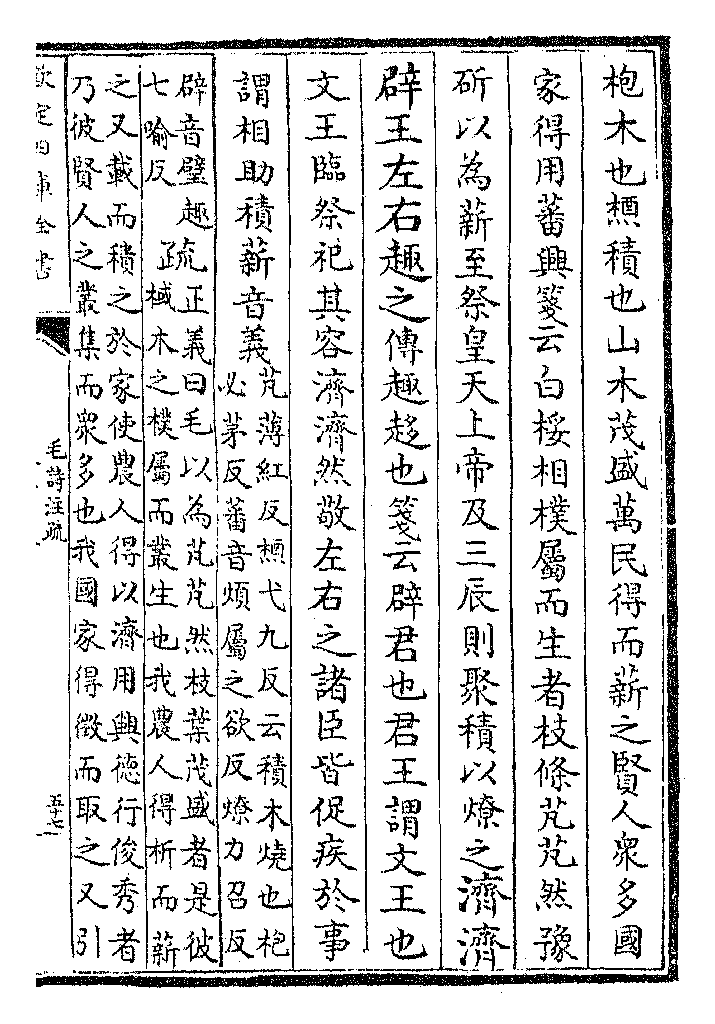 枹木也槱積也山木茂盛萬民得而薪之賢人衆多國
家得用蕃興箋云白桵相樸屬而生者枝條芃芃然豫
斫以為薪至祭皇天上帝及三辰則聚積以燎之濟濟
辟王左右趣之傳趣趍也箋云辟君也君王謂文王也
文王臨祭祀其容濟濟然敬左右之諸臣皆促疾於事
謂相助積薪音義
芃薄紅反槱弋九反云積木燒也枹
必茅反蕃音煩屬之欲反燎力召反
辟音璧趣
七喻反
疏正義曰毛以為芃芃然枝葉茂盛者是彼
棫木之樸屬而叢生也我農人得析而薪
之又載而積之於家使農人得以濟用興德行俊秀者
乃彼賢人之叢集而衆多也我國家得徵而取之又引
欽定四庫全書
毛詩注疏
五十七